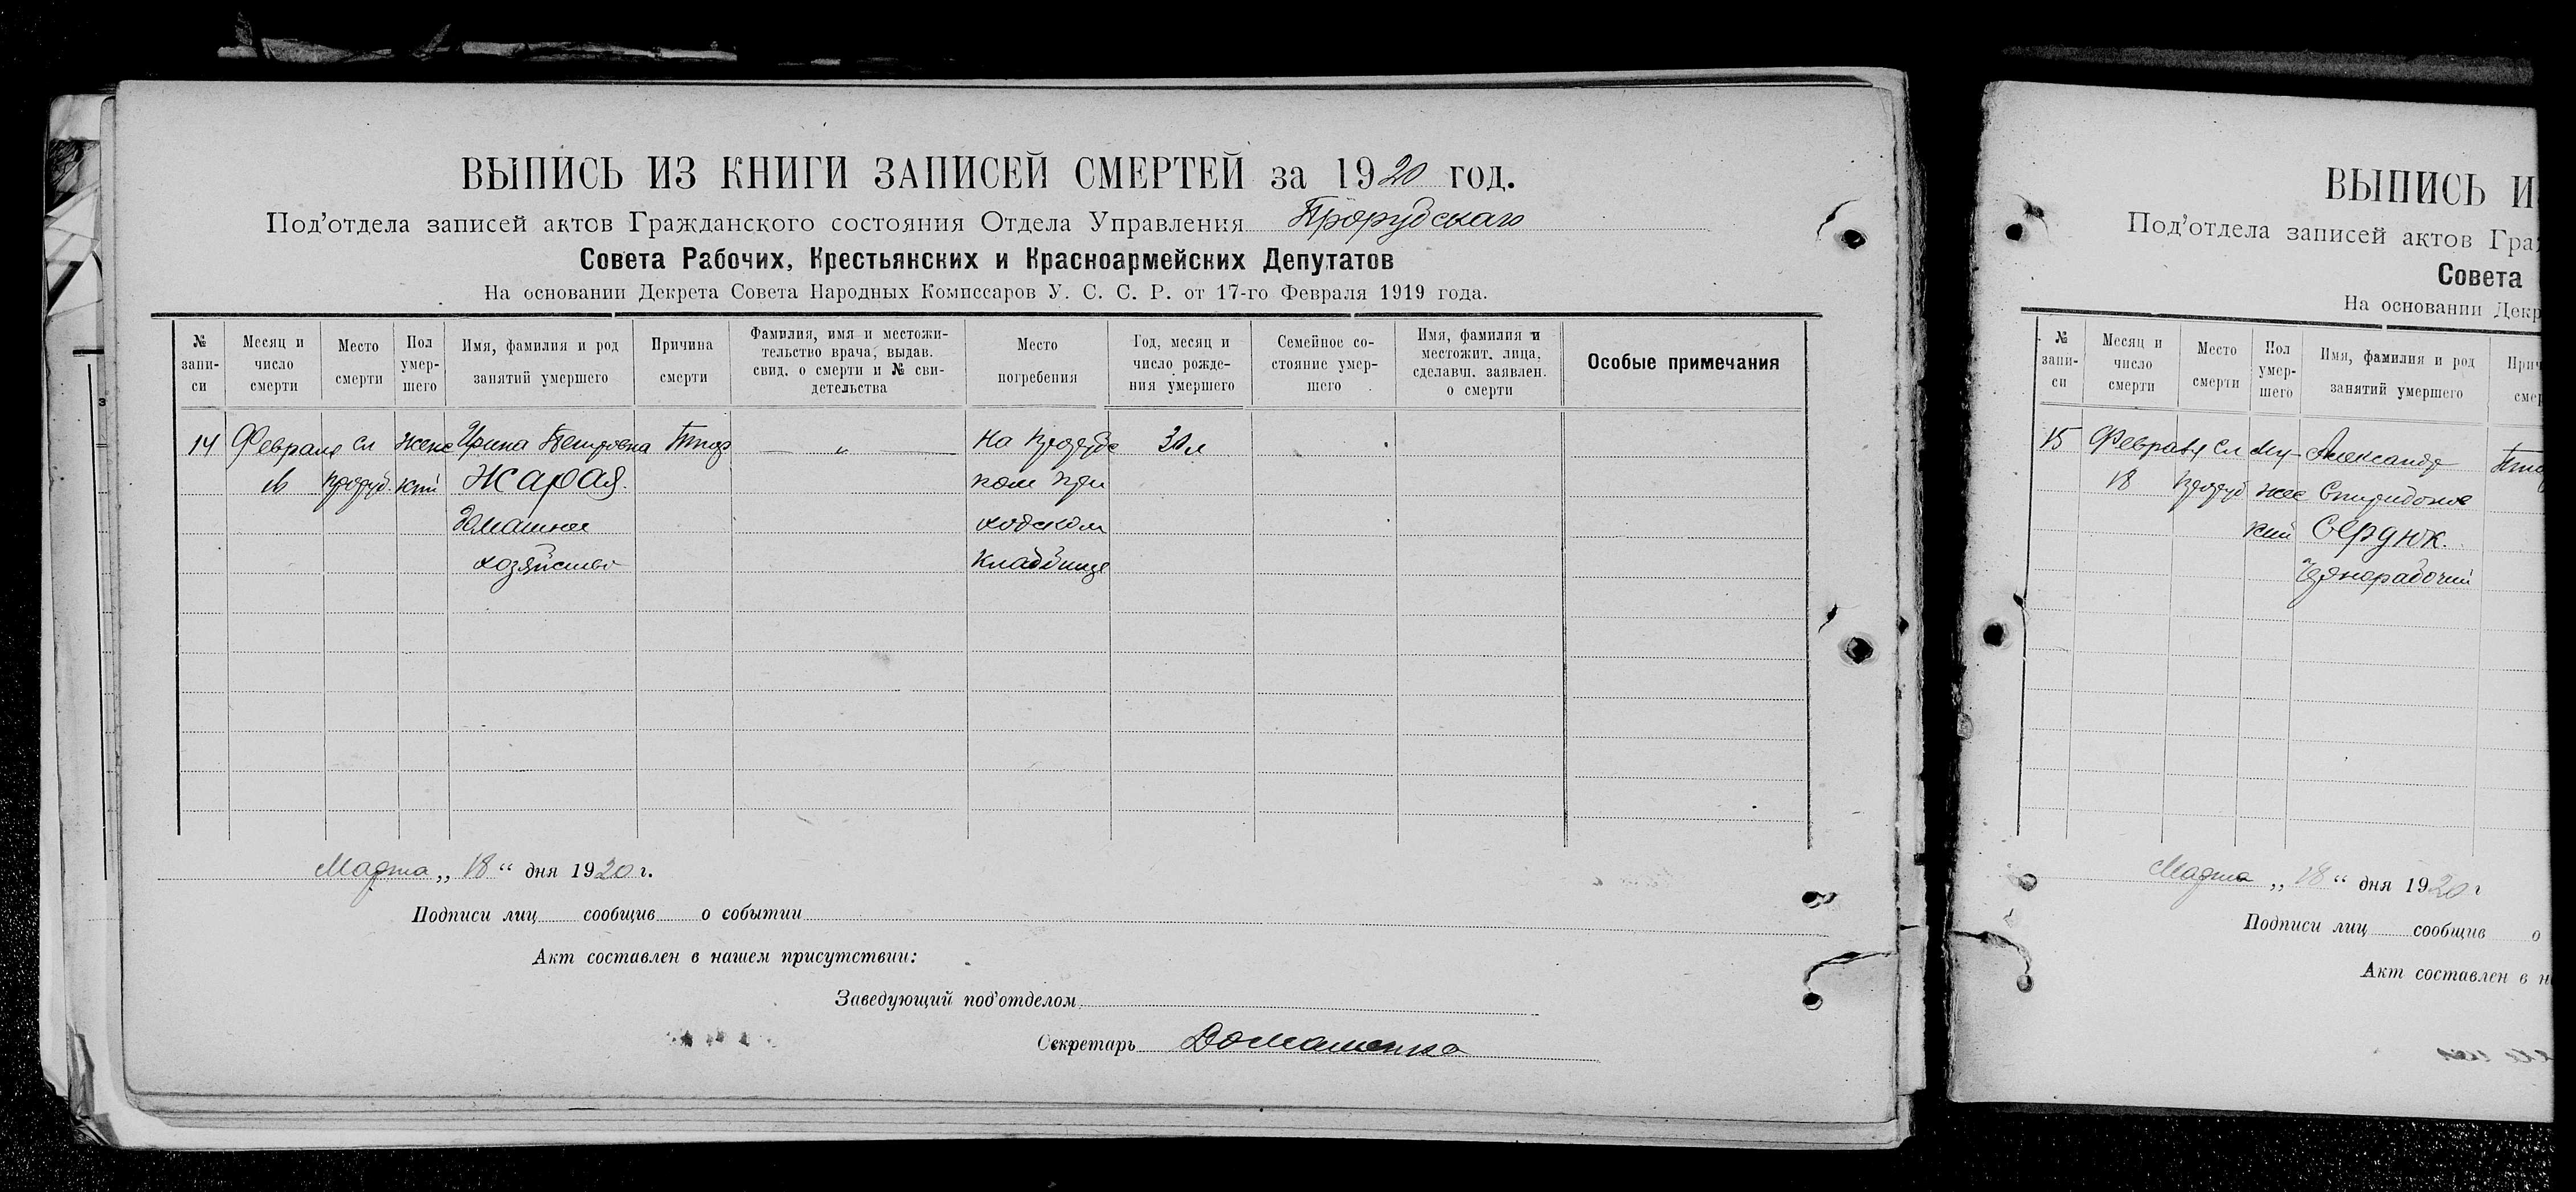 ВЫПИСЬ ИЗ КНИГИ ЗАПИСЕЙ СМЕРТЕЙ за 1920 год.
Под'отдела записей актов Гражданского состояния Отдела Управления Прорубскаго
Совета Рабочих, Крестьянских и Красноармейских Депутатов
На основании Декрета Совета Народных Комиссаров У. С. С. Р. от 17-го Февраля 1919 года.
№ запи-си
Месяц и число смерти
Место смерти
Пол умер-шего
Имя, фамилия и род занятий умершего
Причина смерти
Фамилия, имя и местожи-тельство врача, выдав. свид. о смерти и № сви-детельства
Место погребения
Год, месяц и число рожде-ния умершего
Семейное со-стояние умер-шего
Имя, фамилия и местожит. лица, сделавш. заявлен. о смерти
Особые примечания
14 Февраля сл женс Ирина Петровна Тиф — „ — На Прорубс
Проруб. кий Жарая ком при
Домашнее ходском
хозяйство кладбище
Марта „ 18 “ дня 1920 г.
Подписи лиц сообщив о событии
Акт составлен в нашем присутствии:
Заведующий под'отделом
Секретарь Домашенко
ВЫПИСЬ И
Под'отдела записей актов Граж
Совета
На основании Декр
№ запи-си
Месяц и число смерти
Место смерти
Пол умер-шего
Имя, фамилия и род занятий умершего
Прич
смер
15 Февраля сл му- Александр
18 Проруб жес Спиридонов
кий Сердюк.
Чернорабочий
Марта „ 18 “ дня 1920 г
Подписи лиц сообщив о
Акт составлен в н